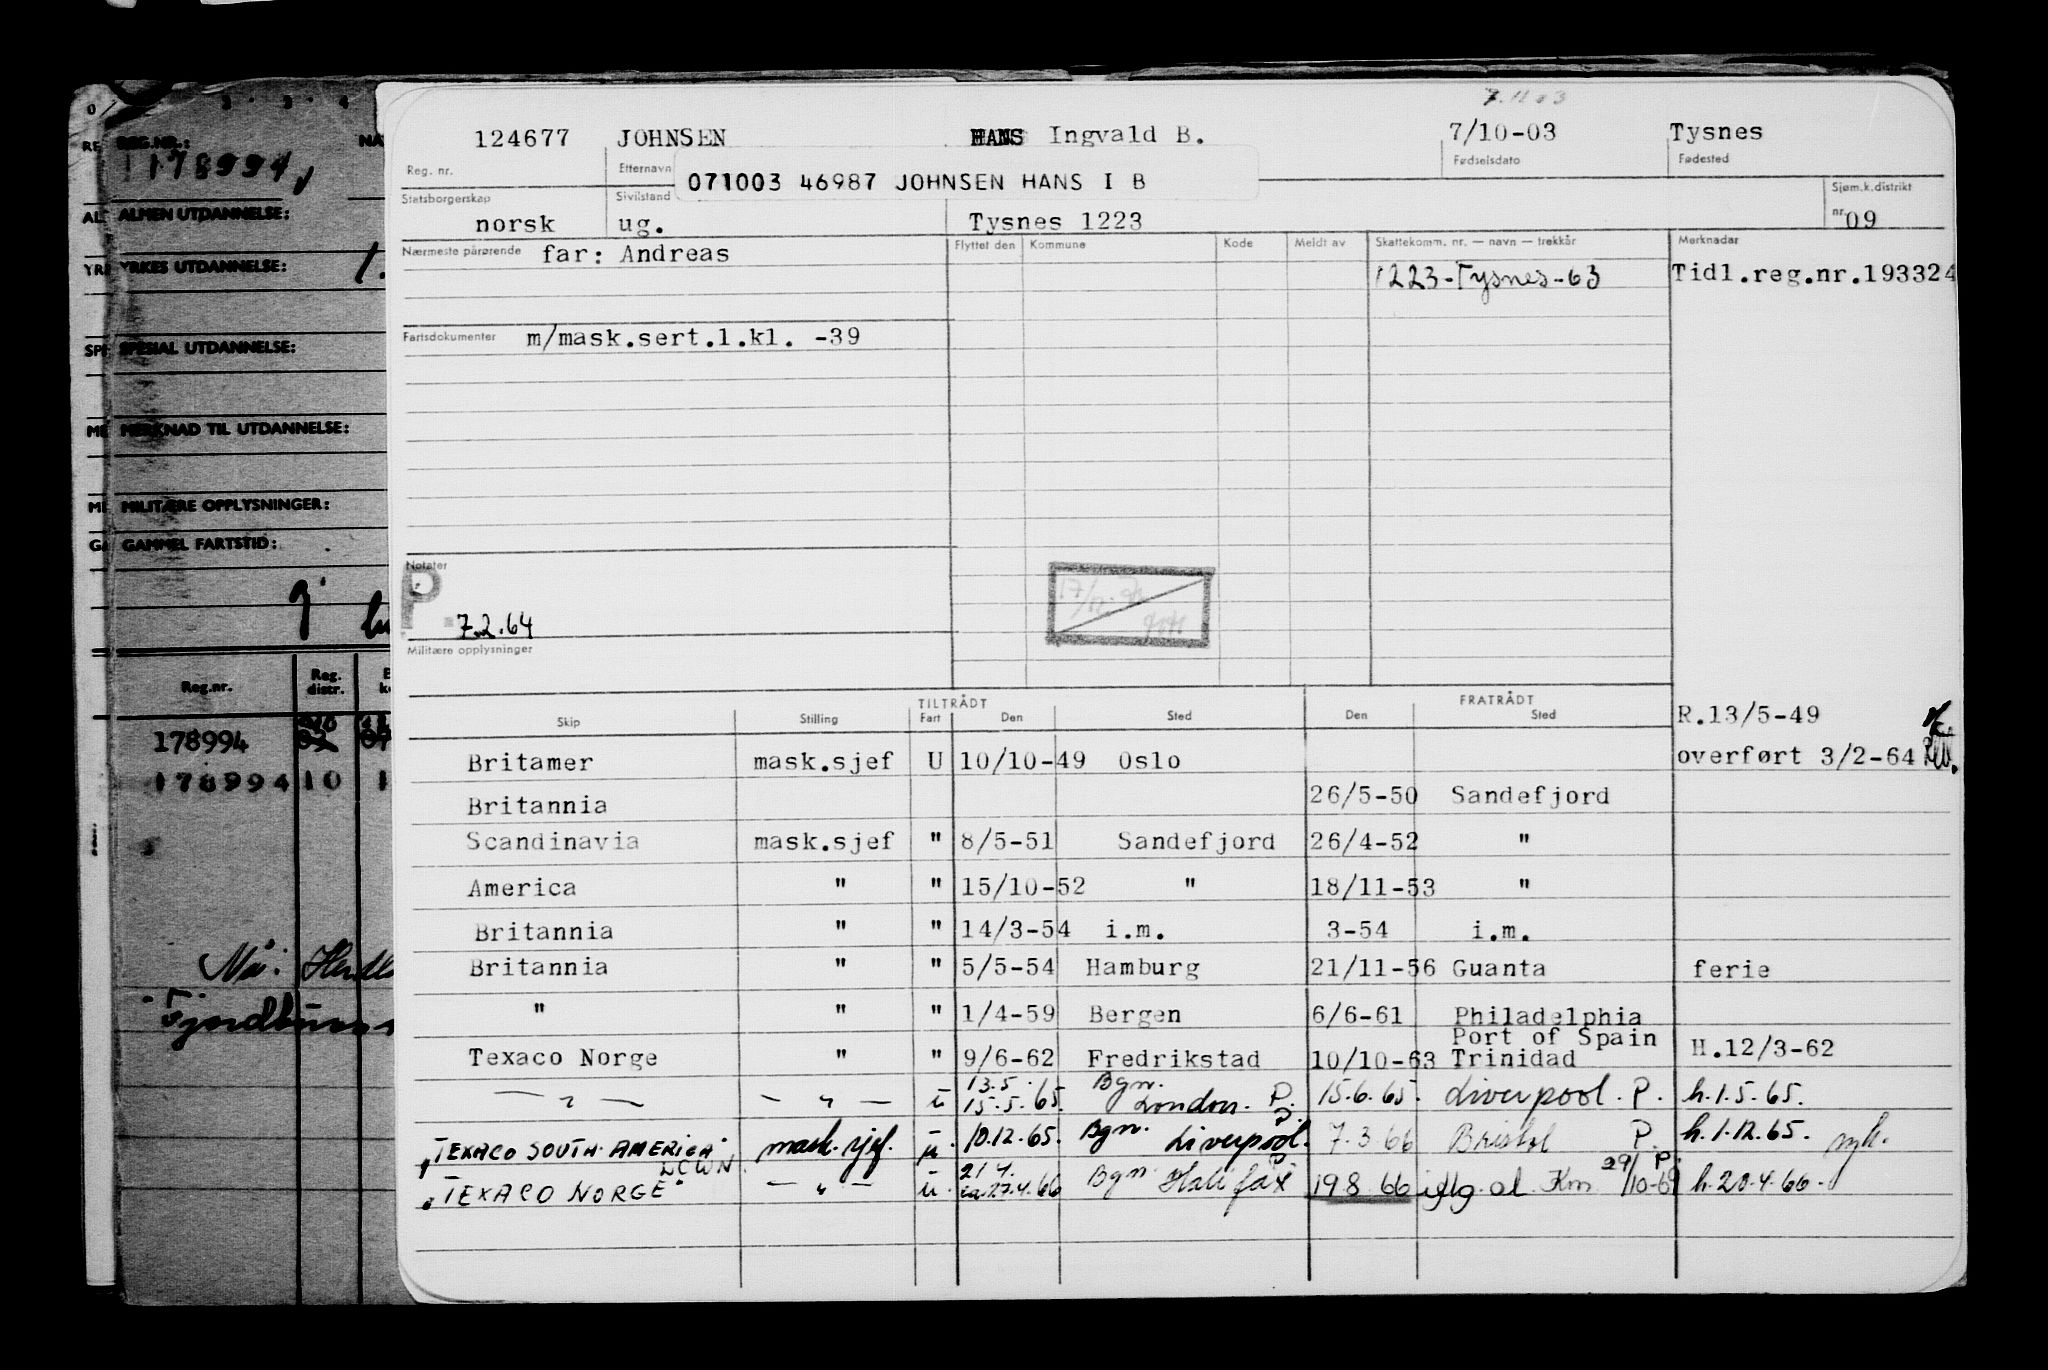 7.11 03
124677 JOHNSEN HANS Ingvald B. 7/10-03 Tysnes
Reg. nr. Etternavn Fødselsdato Fødested
071003 46987 JOHNSEN HANS I B
Statsborgerskap Sivilstand Sjøm.k.distrikt
norsk ug. Tysnes 1223 nr. 09
Nærmeste pårørende far: Andreas Flyttet den Kommune Kode Meldt av Skattekomm. nr. — navn — trekkår Merknader
1223-Tysnes-63 Tidl.reg.nr.193324
Fartsdokumenter m/mask.sert.1.kl. -39
Notater
P
7.2.64
Militære opplysninger
TILTRÅDT FRATRÅDT
Skip Stilling Fart Den Sted Den Sted
R.13/5-49
Britamer mask.sjef U 10/10-49 Oslo overført 3/2-64
Britannia 26/5-50 Sandefjord
Scandinavia mask.sjef " 8/5-51 Sandefjord 26/4-52 "
America " " 15/10-52 " 18/11-53 "
Britannia " " 14/3-54 i.m. 3-54 i.m.
Britannia " " 5/5-54 Hamburg 21/11-56 Guanta ferie
" " " 1/4-59 Bergen 6/6-61 Philadelphia
Port of Spain
Texaco Norge " " 9/6-62 Fredrikstad 10/10-63 Trinidad H.12/3-62
13.5. Bgn.
— " — — " — u 15.5.65. London. P. 15.6.65. Liverpool. P. h.1.5.65.
"TEXACO SOUTH AMERICA" mask.sjef. u. 10.12.65. Bgn. Liverpool. P. 7.3.66 Bristol P. h.1.12.65. syk.
LCWN.
21.4. 29/10-69 P.
"TEXACO NORGE" — " — u. ca.27.4.66 Bgn Halifax P 19 8 66 iflg. al. Km h.20.4.66.
REG.NR.:
178994
ALMEN UTDANNELSE:
YRKES UTDANNELSE:
1.
SPESIAL UTDANNELSE:
MERKNAD TIL UTDANNELSE:
MILITÆRE OPPLYSNINGER:
GAMMEL FARTSTID:
Reg.nr. Reg. distr.
178994
178994 10 1